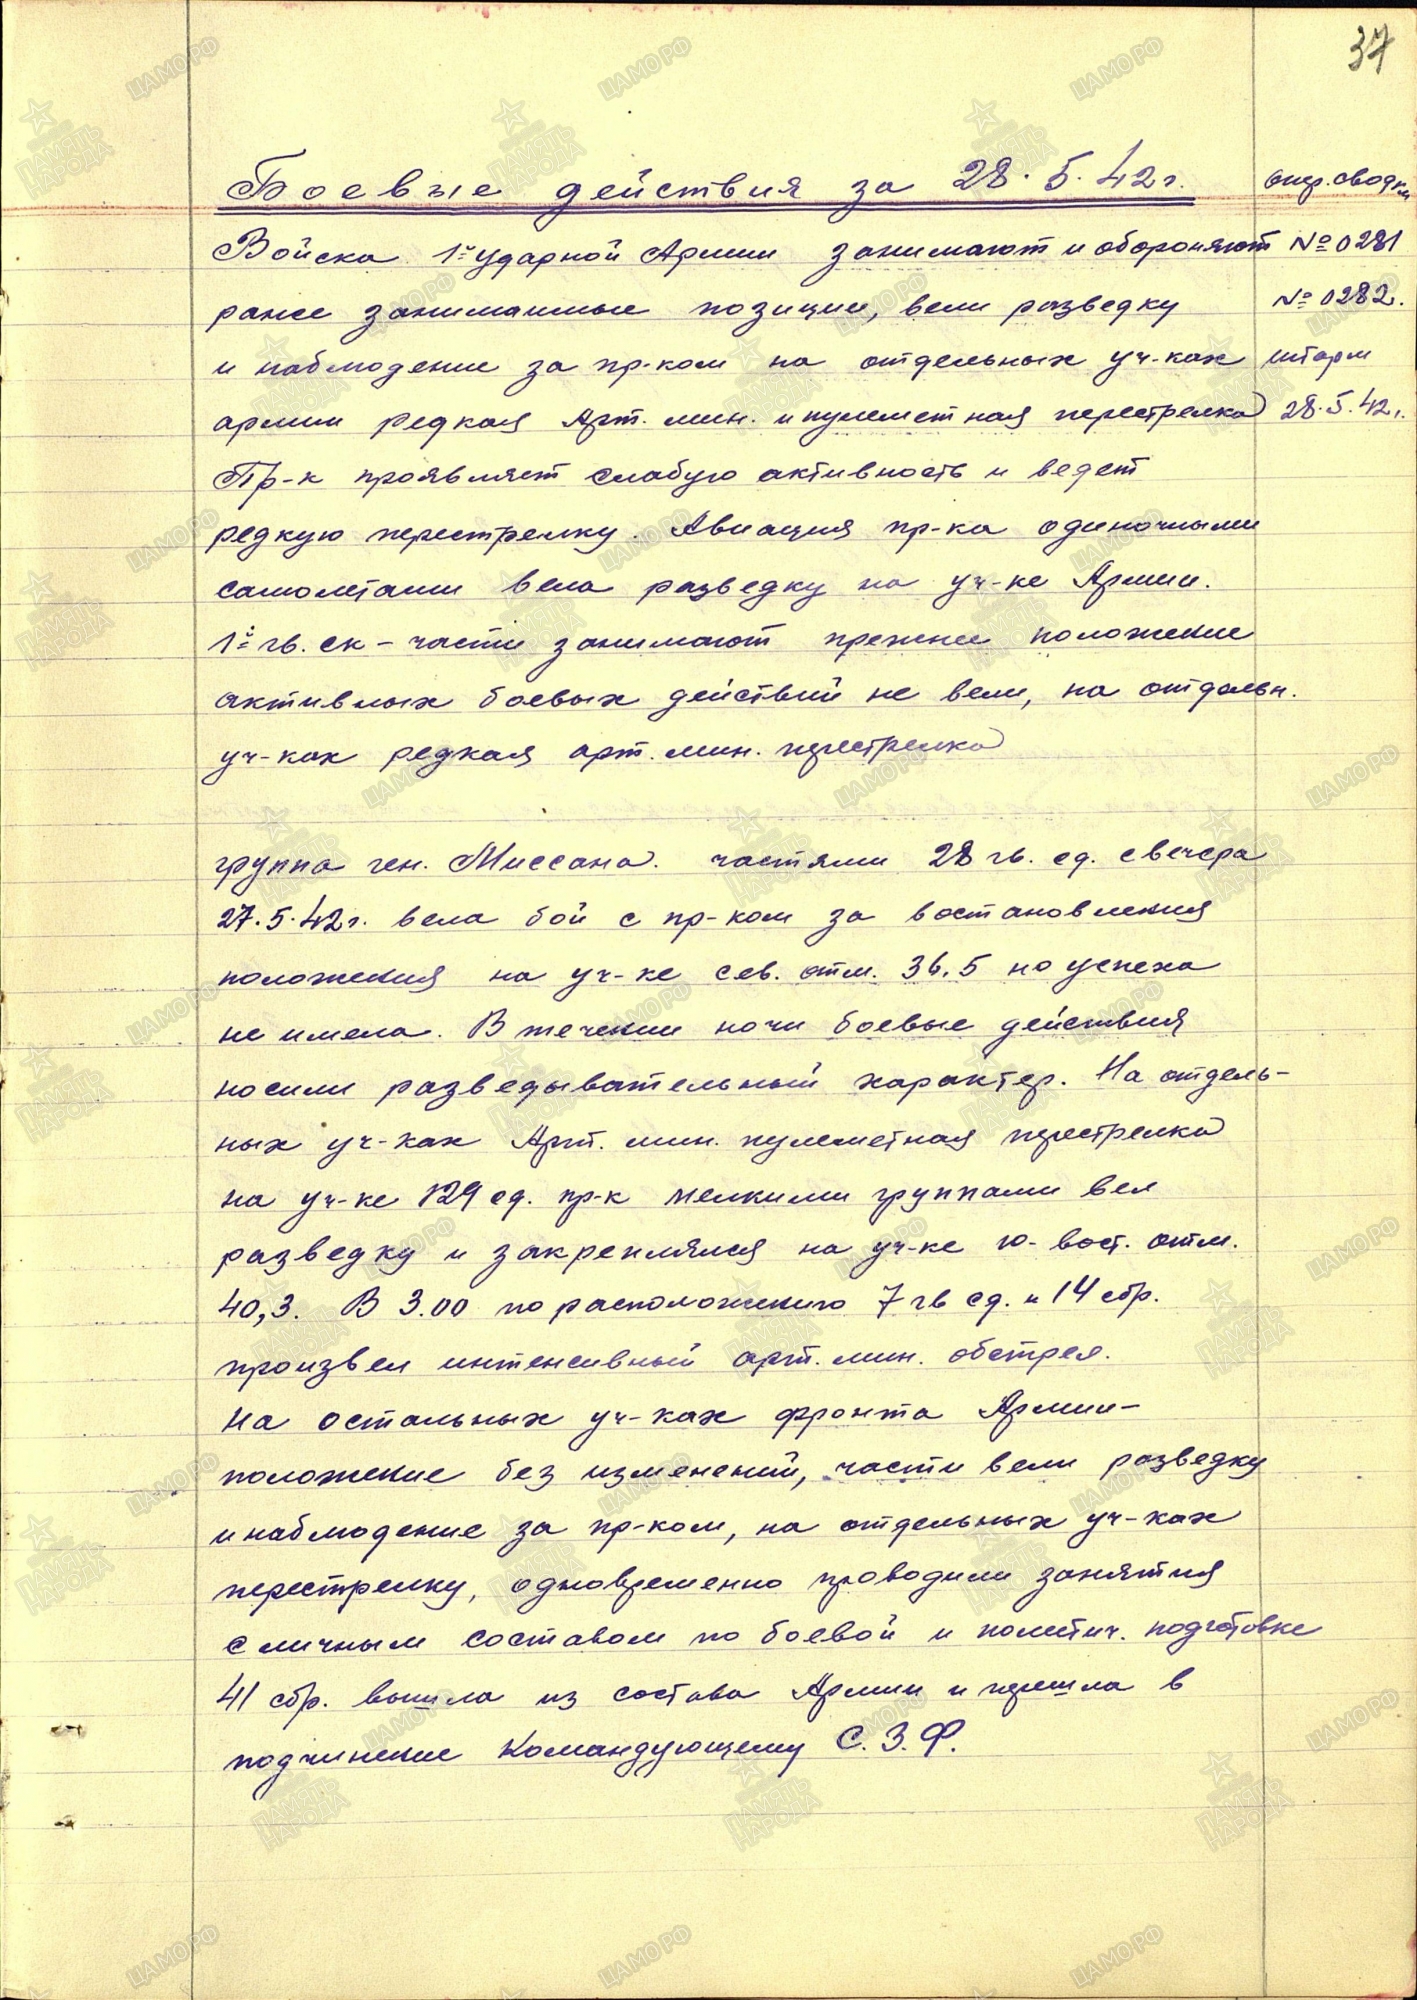 37
Боевые действия за 28.5.42г.
опер. сводки
Войска 1й ударной Армии занимают и обороняют
№ 0281
ранее занимаемые позиции, вели разведку
№ 0282.
и наблюдение за пр-ком на отдельных уч-ках
штарм
армии редкая Арт. мин. и пулеметная перестрелка
28.5.42г.
Пр-к проявляет слабую активность и ведет
редкую перестрелку. Авиация пр-ка одиночными
самолетами вела разведку на уч-ке Армии.
1й гв. ск – части занимают прежнее положение
активных боевых действий не вели, на отдельн.
уч-ках редкая арт. мин. перестрелка
группа ген. Миссана. частями 28 гв. сд. с вечера
27.5.42г. вела бой с пр-ком за востановления
положения на уч-ке сев. отм. 36.5 но успеха
не имела. В течении ночи боевые действия
носили разведывательный характер. На отдель-
ных уч-ках Арт. мин. пулеметная перестрелка
на уч-ке 129 сд. пр-к мелкими группами вел
разведку и закреплялся на уч-ке ю-вост. отм.
40,3. В 3.00 по расположению 7 гв сд. и 14 сбр.
произвел интенсивный арт. мин. обстрел.
На остальных уч-ках фронта Армии –
положение без изменений, части вели разведку
и наблюдение за пр-ком, на отдельных уч-ках
перестрелку, одновременно проводили занятия
с личным составом по боевой и политич. подготовке
41 сбр. вышла из состава Армии и перешла в
подчинение Командующему С.З.Ф.